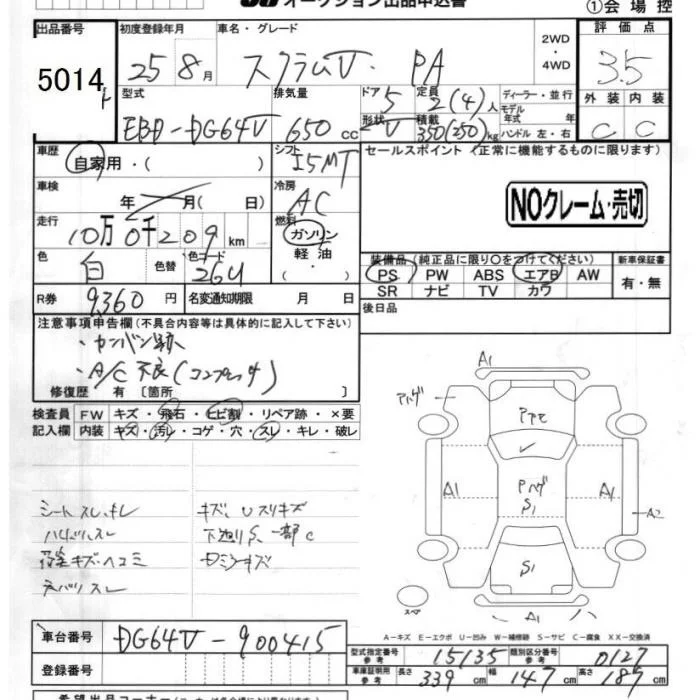 オークション出品申込書
①会場控
出品番号
5014
初度登録年月
25 8月
車名・グレード
スクラムV. PA
2WD・4WD
評価点
3.5
型式
EBD-DG64V
排気量
650cc
ドア
5
形状
V
定員
2(4)人
積載
350(250)kg
ディーラー・並行
モデル年式 年
ハンドル 左・右
外装 内装
C C
車歴
自家用・( )
シフト
I5MT
セールスポイント(正常に機能するものに限ります)
車検
年 月( 日)
冷房
AC
NOクレーム・売切
走行
10万0千209km
燃料
ガソリン
軽油
・( )
色
白
色替
色コード
26U
装備品(純正品に限り○をつけてください)
新車保証書
PS PW ABS エアB AW
SR ナビ TV カワ
有・無
R券
9,360円
名変通知期限 月 日
後日品
注意事項申告欄(不具合内容等は具体的に記入して下さい)
・カンバン跡
・A/C不良(コンプレッサ)
修復歴 有〔箇所 〕
検査員記入欄
FW キズ・飛石・ヒビ割・リペア跡・×要
内装 キズ・汚れ・コゲ・穴・スレ・キレ・破レ
シートスレ、キレ
キズ、Uスリキズ
下廻りS、一部C
A1
A1
A1
A2
S1
S1
A1
スペア
A-キズ E-エクボ U-凹み W-補修跡 S-サビ C-腐食 XX-交換済
車台番号
DG64V-900415
登録番号
型式指定番号 参考
15135
類別区分番号 参考
0127
車庫証明用 参考
長さ 339cm 幅 147cm 高さ 187cm
希望出品コーナー